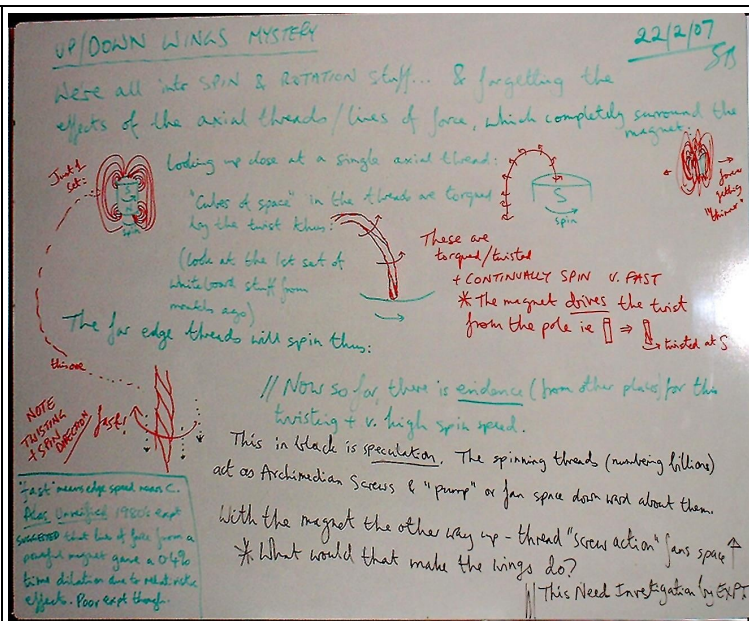 UP/DOWN WINGS MYSTERY
22/2/07
SB
We're all into SPIN & ROTATION stuff... & forgetting the
effects of the axial threads/lines of force, which completely surround the
magnet.
Just 1
set:
S
N
spin
Looking up close at a single axial thread:
"Cubes of space" in the threads are torqued
by the twist thus:
(look at the 1st set of
whiteboard stuff from
months ago)
S
spin
force
getting
"thinner"
These are
torqued/twisted
+ CONTINUALLY SPIN V. FAST
* The magnet drives the twist
from the pole ie ⇒
twisted at S
The far edge threads will spin thus:
this one
NOTE
TWISTING
+ SPIN
DIRECTION
fast!
// Now so far, there is evidence (from other places) for this
twisting + v. high spin speed.
This in black is speculation. The spinning threads (numbering billions)
act as Archimedian Screws & "pump" or fan space down ward about them.
With the magnet the other way up - thread "screw action" fans space ↑
* What would that make the wings do?
This Need Investigation by EXPT
"fast" means edge speed near C.
Also, Unverified 1980's expt
SUGGESTED that line of force from a
powerful magnet gave a 0.4%
time dilation due to relativistic
effects. Poor expt though.